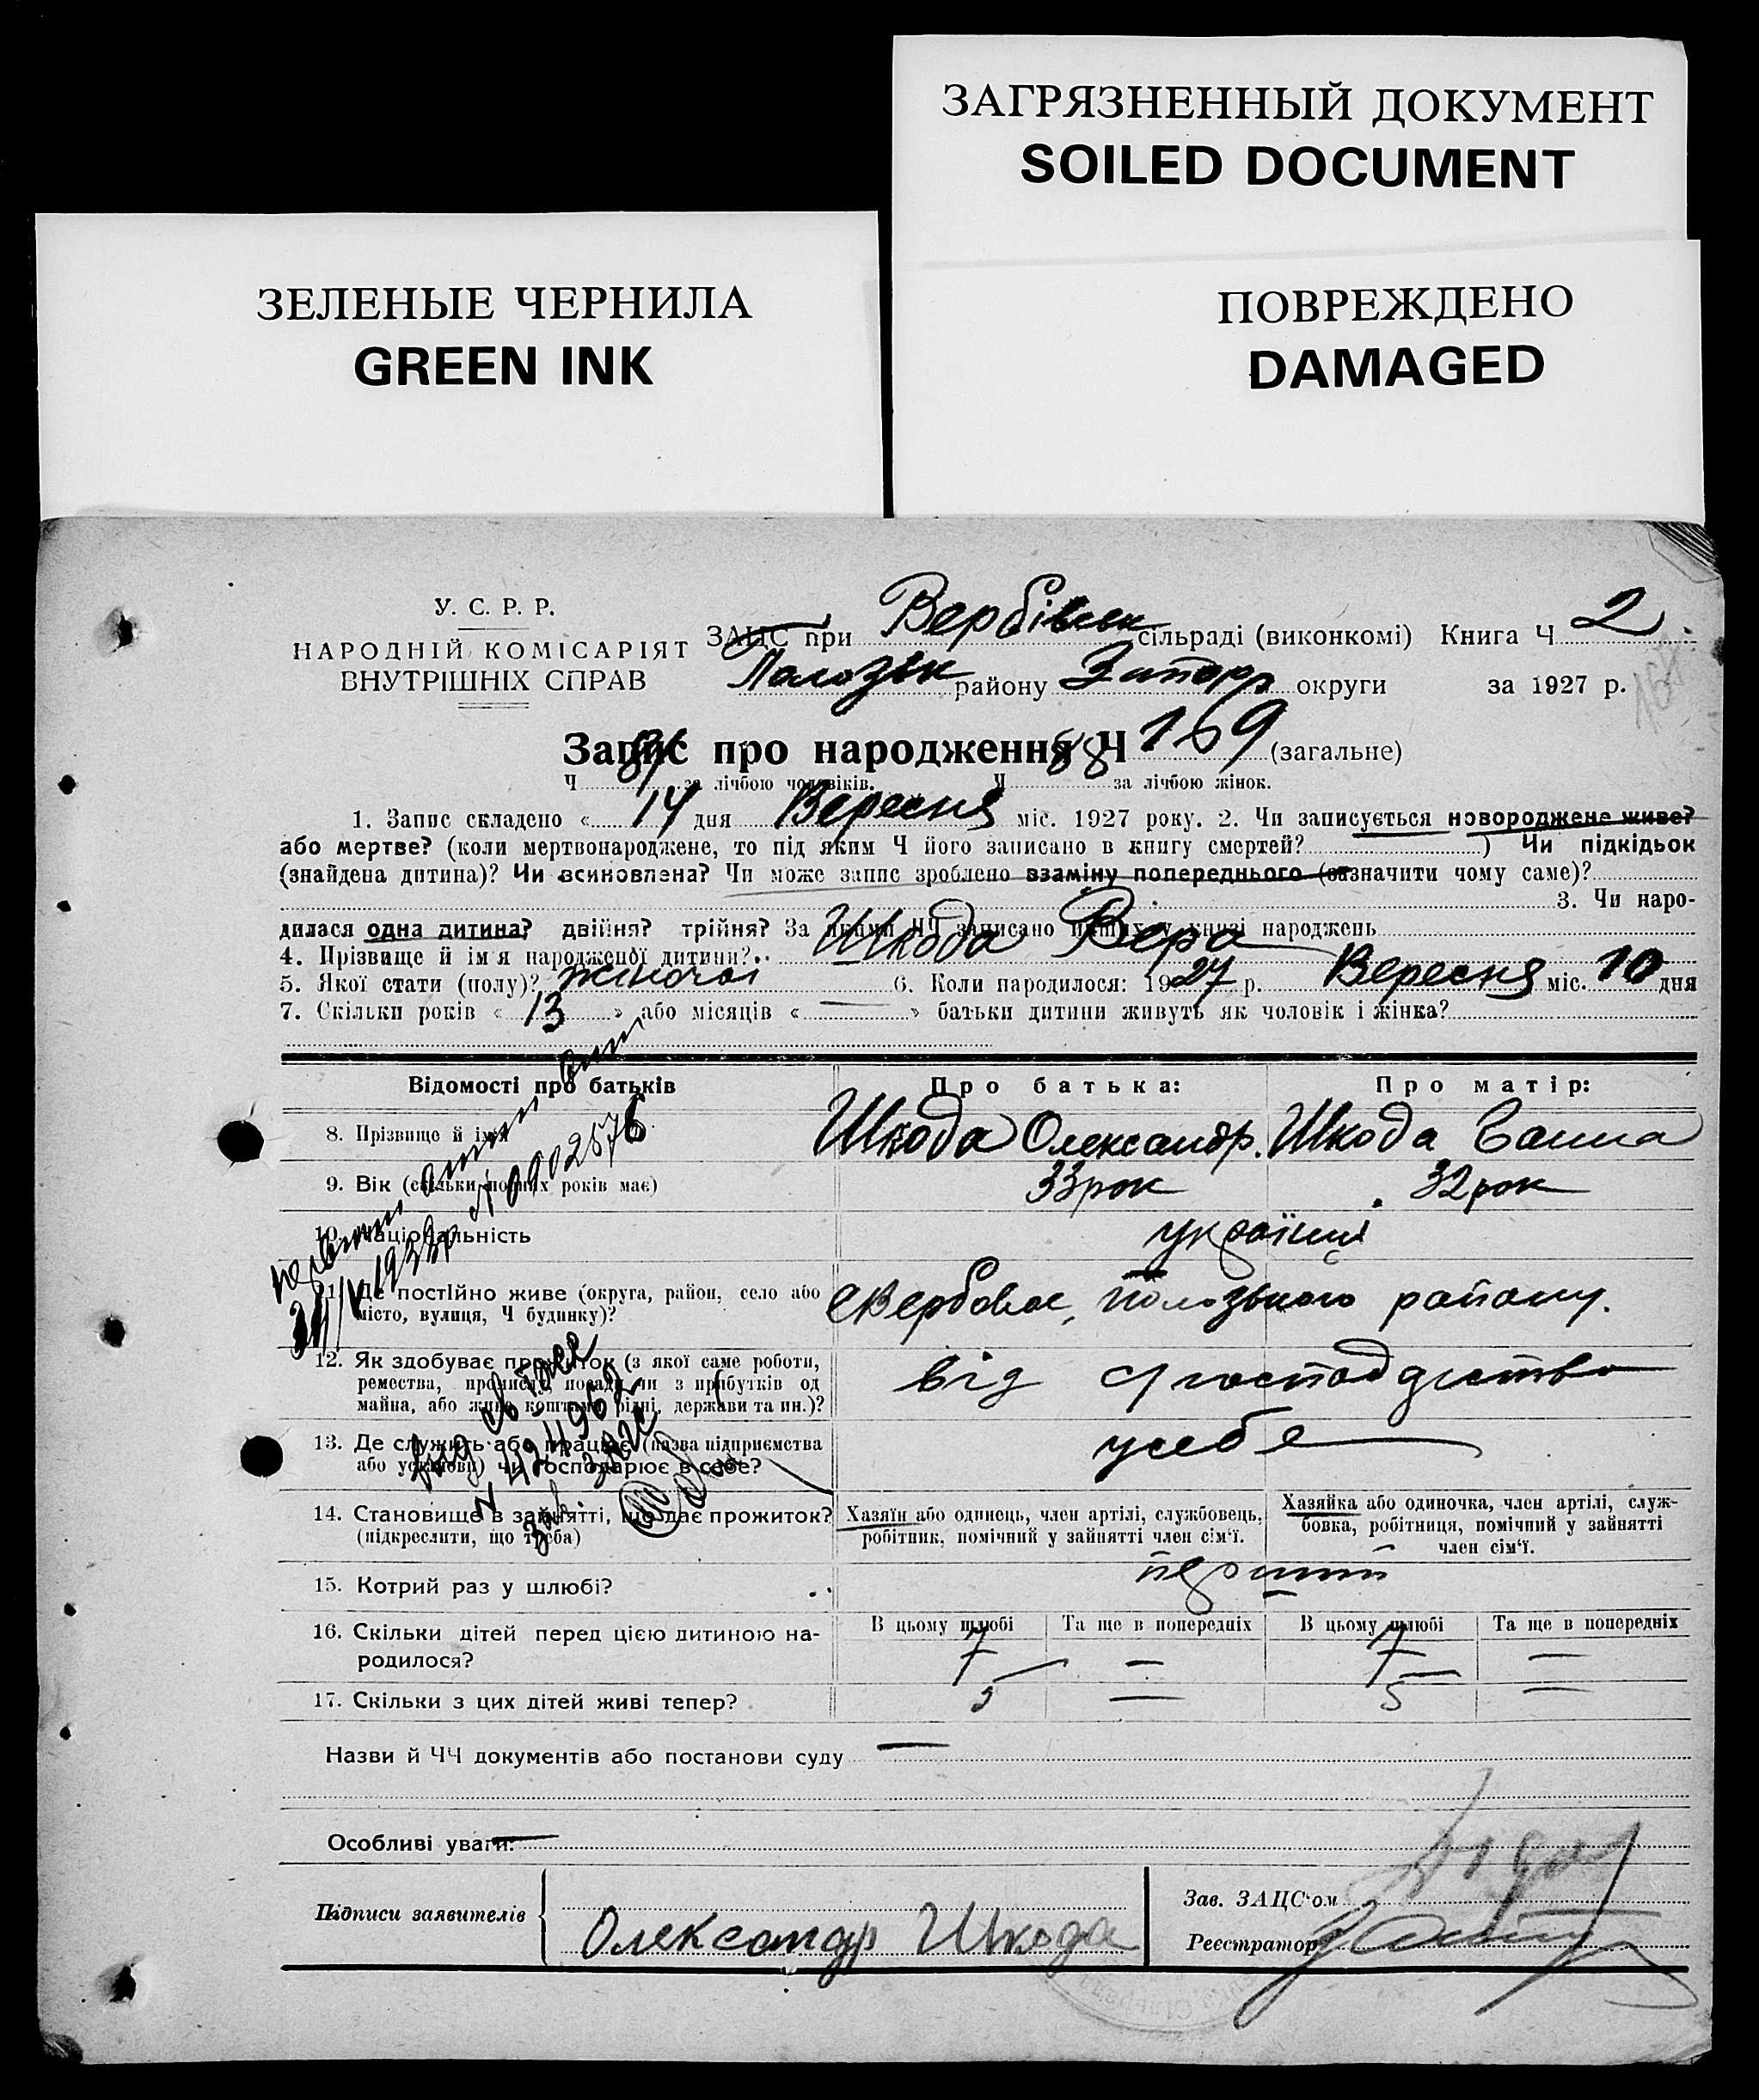 ЗАГРЯЗНЕННЫЙ ДОКУМЕНТ
SOILED DOCUMENT
ЗЕЛЕНЫЕ ЧЕРНИЛА
GREEN INK
ПОВРЕЖДЕНО
DAMAGED
У. С. Р. Р.
НАРОДНІЙ КОМІСАРІЯТ
ВНУТРІШНІХ СПРАВ
ЗАЦС при Вербівськ сільраді (виконкомі) Книга Ч 2
району Запор округи за 1927 р.
Запис про народження Ч 169 (загальне)
Ч за лічбою чоловіків. Ч 88 за лічбою жінок.
1. Запис складено « 14 дня Вересня міс. 1927 року. 2. Чи записується новороджене живе?
або мертве? (коли мертвонароджене, то під яким Ч його записано в книгу смертей? ) Чи підкідьок
(знайдена дитина)? Чи всиновлена? Чи може запис зроблено взаміну попереднього (зазначити чому саме)?
3. Чи наро-
дилася одна дитина? двійня? трійня? За якими ЧЧ записано инших у книзі народжень
4. Прізвище й ім'я народженої дитини? Шкода Віра
5. Якої стати (полу)? жіночої 6. Коли народилося: 1927 р. Вересня міс. 10 дня
7. Скільки років « 13 » або місяців « — » батьки дитини живуть як чоловік і жінка?
Відомості про батьків Про батька: Про матір:
8. Прізвище й ім'я Шкода Олександр. Шкода Ганна
9. Вік (скільки повних років має) 33 рок 32 рок
10. Національність українці
11. Де постійно живе (округа, район, село або
місто, вулиця, Ч будинку)? с Вербове, Полозького району.
12. Як здобуває прожиток (з якої саме роботи,
ремества, промислу, посади чи з прибутків од
майна, або живе коштами рідні, держави та ин.)? від с/господарства
13. Де служить або працює (назва підприємства
або установи) чи господарює в себе? у себе
14. Становище в зайнятті, що дає прожиток?
(підкреслити, що треба)
Хазяїн або одинець, член артілі, службовець,
робітник, помічний у зайнятті член сім'ї.
Хазяйка або одиночка, член артілі, служ-
бовка, робітниця, помічний у зайнятті
член сім'ї.
15. Котрий раз у шлюбі? перший
16. Скільки дітей перед цією дитиною на-
родилося?
В цьому шлюбі Та ще в попередніх В цьому шлюбі Та ще в попередніх
7 — 7 —
17. Скільки з цих дітей живі тепер? 5 — 5 —
Назви й ЧЧ документів або постанови суду —
Особливі уваги: —
Підписи заявителів Олександр Шкода
Зав. ЗАЦС'ом
Реєстратор